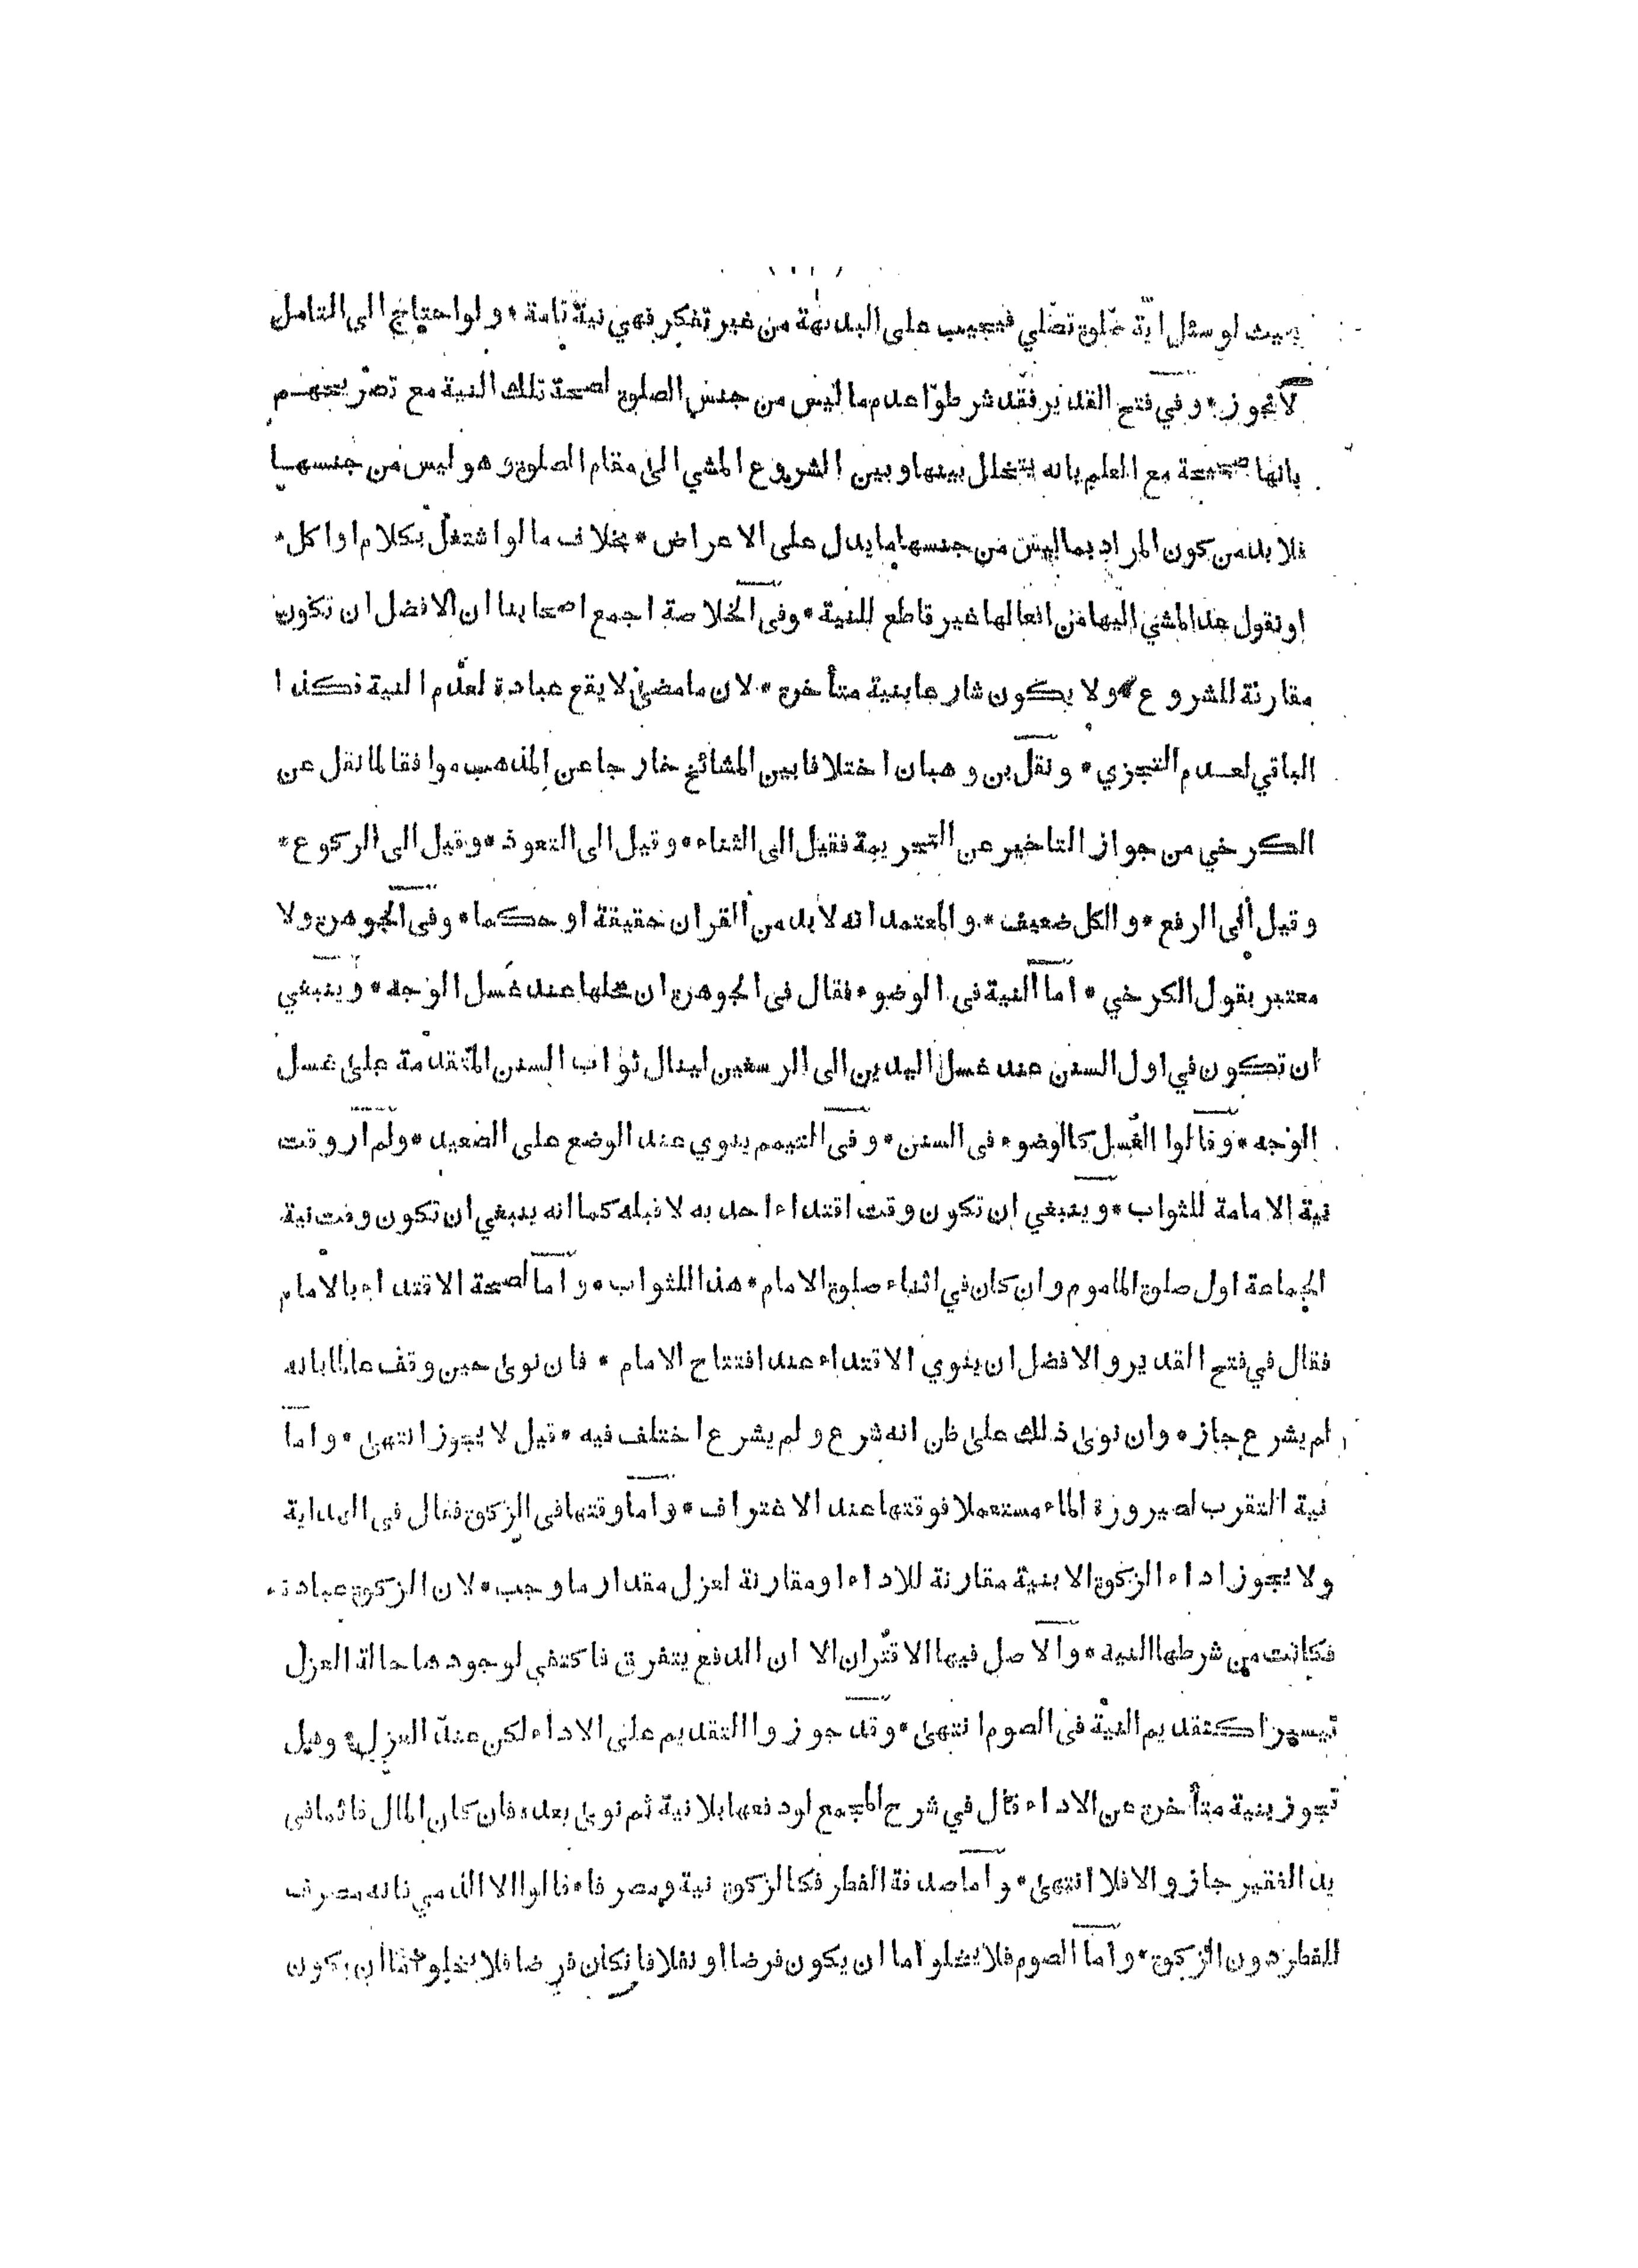 بحيث لو سئل اية صلوة تصلي فيجيب على البديهة من غير تفكر فهي نية تامة * ولو احتاج الى التامل
لا يجوز * و في فتح القدير فقد شرطوا عدم ما ليس من جنس الصلوة لصحة تلك النية مع تصريحهم
بانها صحيحة مع العلم بانه يتخلل بينها وبين الشروع المشي الى مقام الصلوة وهو ليس من جنسها
فلا بد من كون المراد بما ليس من جنسها ما يدل على الاعراض * بخلاف ما لو اشتغل بكلام او اكل *
او نقول عد المشي اليها من افعالها غير قاطع للنية * وفى الخلاصة اجمع اصحابنا ان الافضل ان تكون
مقارنة للشروع * ولا يكون شارعا بنية متأخرة * لان ما مضى لا يقع عبادة لعدم النية فكذا
الباقي لعدم التجزي * ونقل بن وهبان اختلافا بين المشائخ خارجا عن المذهب موافقا لما نقل عن
الكرخي من جواز التاخير عن التحريمة فقيل الى الثناء * وقيل الى التعوذ * وقيل الى الركوع *
وقيل الى الرفع * والكل ضعيف * والمعتمد انه لا بد من القران حقيقة او حكما * وفى الجوهرة ولا
معتبر بقول الكرخي * اما النية فى الوضوء فقال فى الجوهرة ان محلها عند غسل الوجه * وينبغي
ان تكون في اول السنن عند غسل اليدين الى الرسغين لينال ثواب السنن المتقدمة على غسل
الوجه * وقالوا الغسل كالوضوء فى السنن * وفى التيمم ينوي عند الوضع على الصعيد * ولم ار وقت
نية الامامة للثواب * وينبغي ان تكون وقت اقتداء احد به لا قبله كما انه ينبغي ان تكون وقت نية
الجماعة اول صلوة الماموم وان كان في اثناء صلوة الامام * هذا للثواب * واما لصحة الاقتداء بالامام
فقال في فتح القدير والافضل ان ينوي الاقتداء عند افتتاح الامام * فان نوى حين وقف عالما بانه
لم يشرع جاز * وان نوى ذلك على ظن انه شرع ولم يشرع اختلف فيه * قيل لا يجوز انتهى * واما
نية التقرب لصيرورة الماء مستعملا فوقتها عند الاغتراف * واما وقتها فى الزكوة فقال فى الهداية
ولا يجوز اداء الزكوة الا بنية مقارنة للاداء او مقارنة لعزل مقدار ما وجب * لان الزكوة عبادة *
فكانت من شرطها النية * والاصل فيها الاقتران الا ان الدفع يتفرق فاكتفي لوجودها حالة العزل
تيسيرا كتقديم النية فى الصوم انتهى * وقد جوزوا التقديم على الاداء لكن عند العزل * وهل
تجوز بنية متأخرة عن الاداء قال في شرح المجمع لو دفعها بلا نية ثم نوى بعده فان كان المال قائما فى
يد الفقير جاز والا فلا انتهى * واما صدقة الفطر فكالزكوة نية ومصرفا * قالوا الا الذمي فانه مصرف
للفطر دون الزكوة * واما الصوم فلا يخلو اما ان يكون فرضا او نفلا فانكان فرضا فلا يخلو اما ان يكون